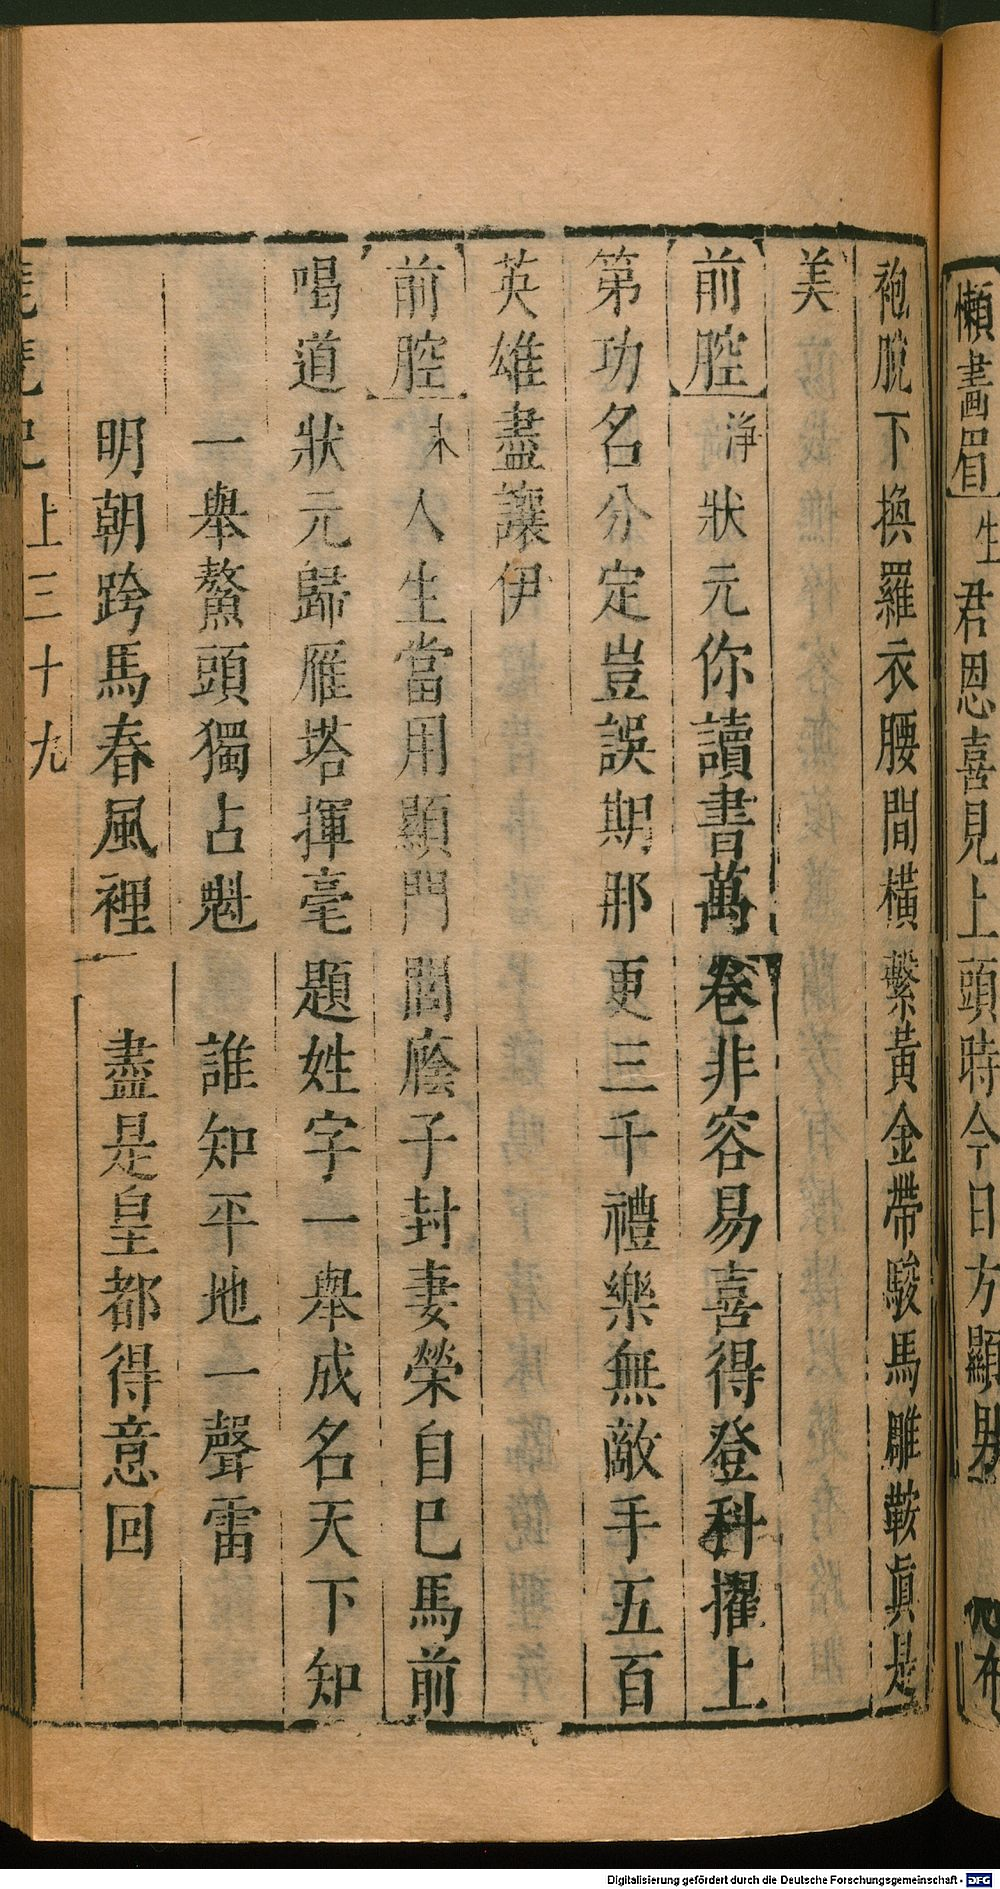 懶畫眉 生 君恩喜見上頭時今日方顯男 布
袍脫下換羅衣腰間橫繫黃金帶駿馬雕鞍真是
美
前腔 淨 狀元你讀書萬卷非容易喜得登科擢上
第功名分定豈誤期那更三千禮樂無敵手五百
英雄盡讓伊
前腔 末 人生當用顯門閭廕子封妻榮自巳馬前
喝道狀元歸雁塔揮毫題姓字一舉成名天下知
一舉鰲頭獨占魁 誰知平地一聲雷
明朝跨馬春風裡 盡是皇都得意回
上 三十九
Digitalisierung gefördert durch die Deutsche Forschungsgemeinschaft - DFG